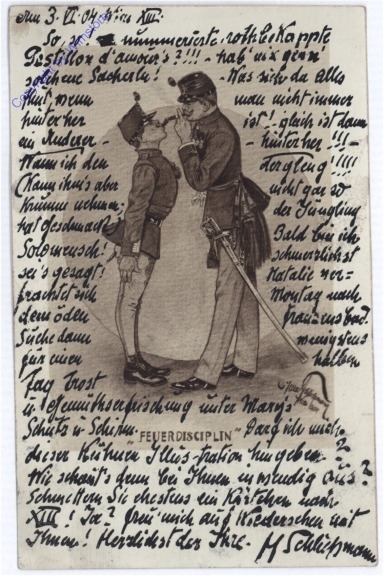 3. VI. 04. Wien XIII.
So, so nummerierte, rothbekappte
Postillon d'amour's?!!! - hab' nix gern
solchene Sacherln! - Was sich da alls
thut, wenn man nicht immer
hinterher ist! gleich ist dann
ein Anderer - - hinterher!!! -
Wann ich den
Kann ihm's aber nicht gar so
krumm nehmen - der Jüngling
hat Geschmack! Bald bin ich
schmerzlichst
sei's gesagt! Natalie ver-
frachtet sich Montag nach
dem öden Franzensbad.
Suche dann wenigstens
für einen halben
Tag Trost
u. Gemüthserfrischung unter Mary's
Schutz u. Schirm.
"FEUERDISCIPLIN" Darf ich mich
dieser kühnen Illustration hingeben?
Wie schaut's denn bei Ihnen inwendig aus?
Schmettern Sie ehestens ein Kärtchen nach
XIII! Ja? freu' mich auf Wiedersehen mit
Ihnen! Herzlichst der Ihre.